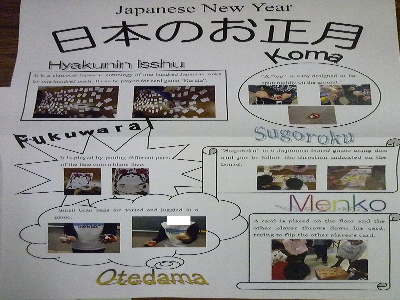 Japanese New Year
日本のお正月
Hyakunin Isshu
It is a classical Japanese anthology of one hundred Japanese
by one hundred poets. It can be played for card game "Karuta".
Koma
"A Koma" is a toy designed to be
Fukuwarai
It is played by pinning different parts
of the face onto a blank face.
Sugoroku
"Sugoroku" is a Japanese board game using dice
and you to follow the direction indicated on the
board.
Menko
A card is placed on the floor and the
other player throws down his card,
trying to flip the other player's card.
Small bean bags are tossed and juggled in a
game.
Otedama